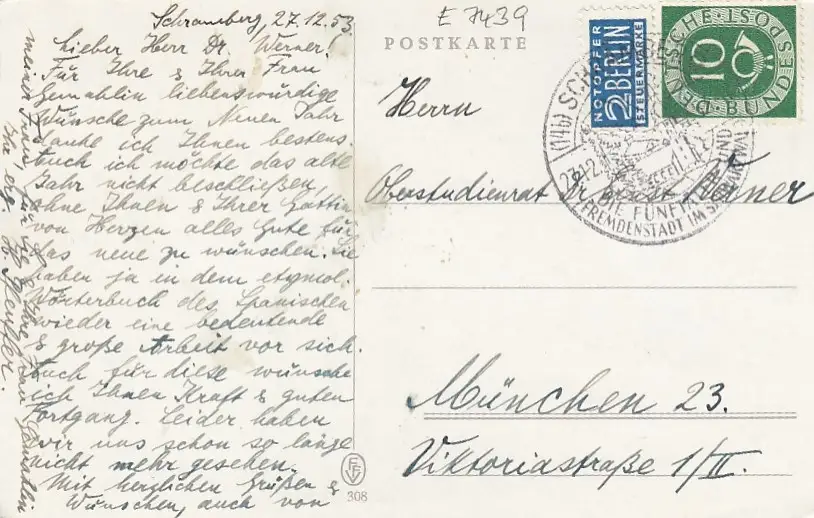 Schramberg, 27.12.53
Lieber Herr Dr. Werner!
Für Ihre & Ihrer Frau
Gemahlin liebenswürdige
Wünsche zum Neuen Jahr
danke ich Ihnen bestens.
Auch ich möchte das alte
Jahr nicht beschließen,
ohne Ihnen & Ihrer Gattin
von Herzen alles Gute für
das neue zu wünschen. Sie
haben ja in dem etymol.
Wörterbuch des Spanischen
wieder eine bedeutende
& große Arbeit vor sich.
Auch für diese wünsche
ich Ihnen Kraft & guten
Fortgang. Leider haben
wir uns schon so lange
nicht mehr gesehen.
Mit herzlichen Grüßen &
Wünschen, auch von
meiner Frau, für Sie & Ihre Frau Gemahlin
Ihr erg.
E 7439
POSTKARTE
NOTOPFER
2 BERLIN
STEUERMARKE
DEUTSCHE BUNDESPOST
10
(14b) SCHRAMBERG
DIE FÜNFTÄLER
FREMDENSTADT IM SCHWARZWALD
Herrn
Oberstudienrat Dr. Ernst Werner
München 23.
Viktoriastraße 1/II.
308